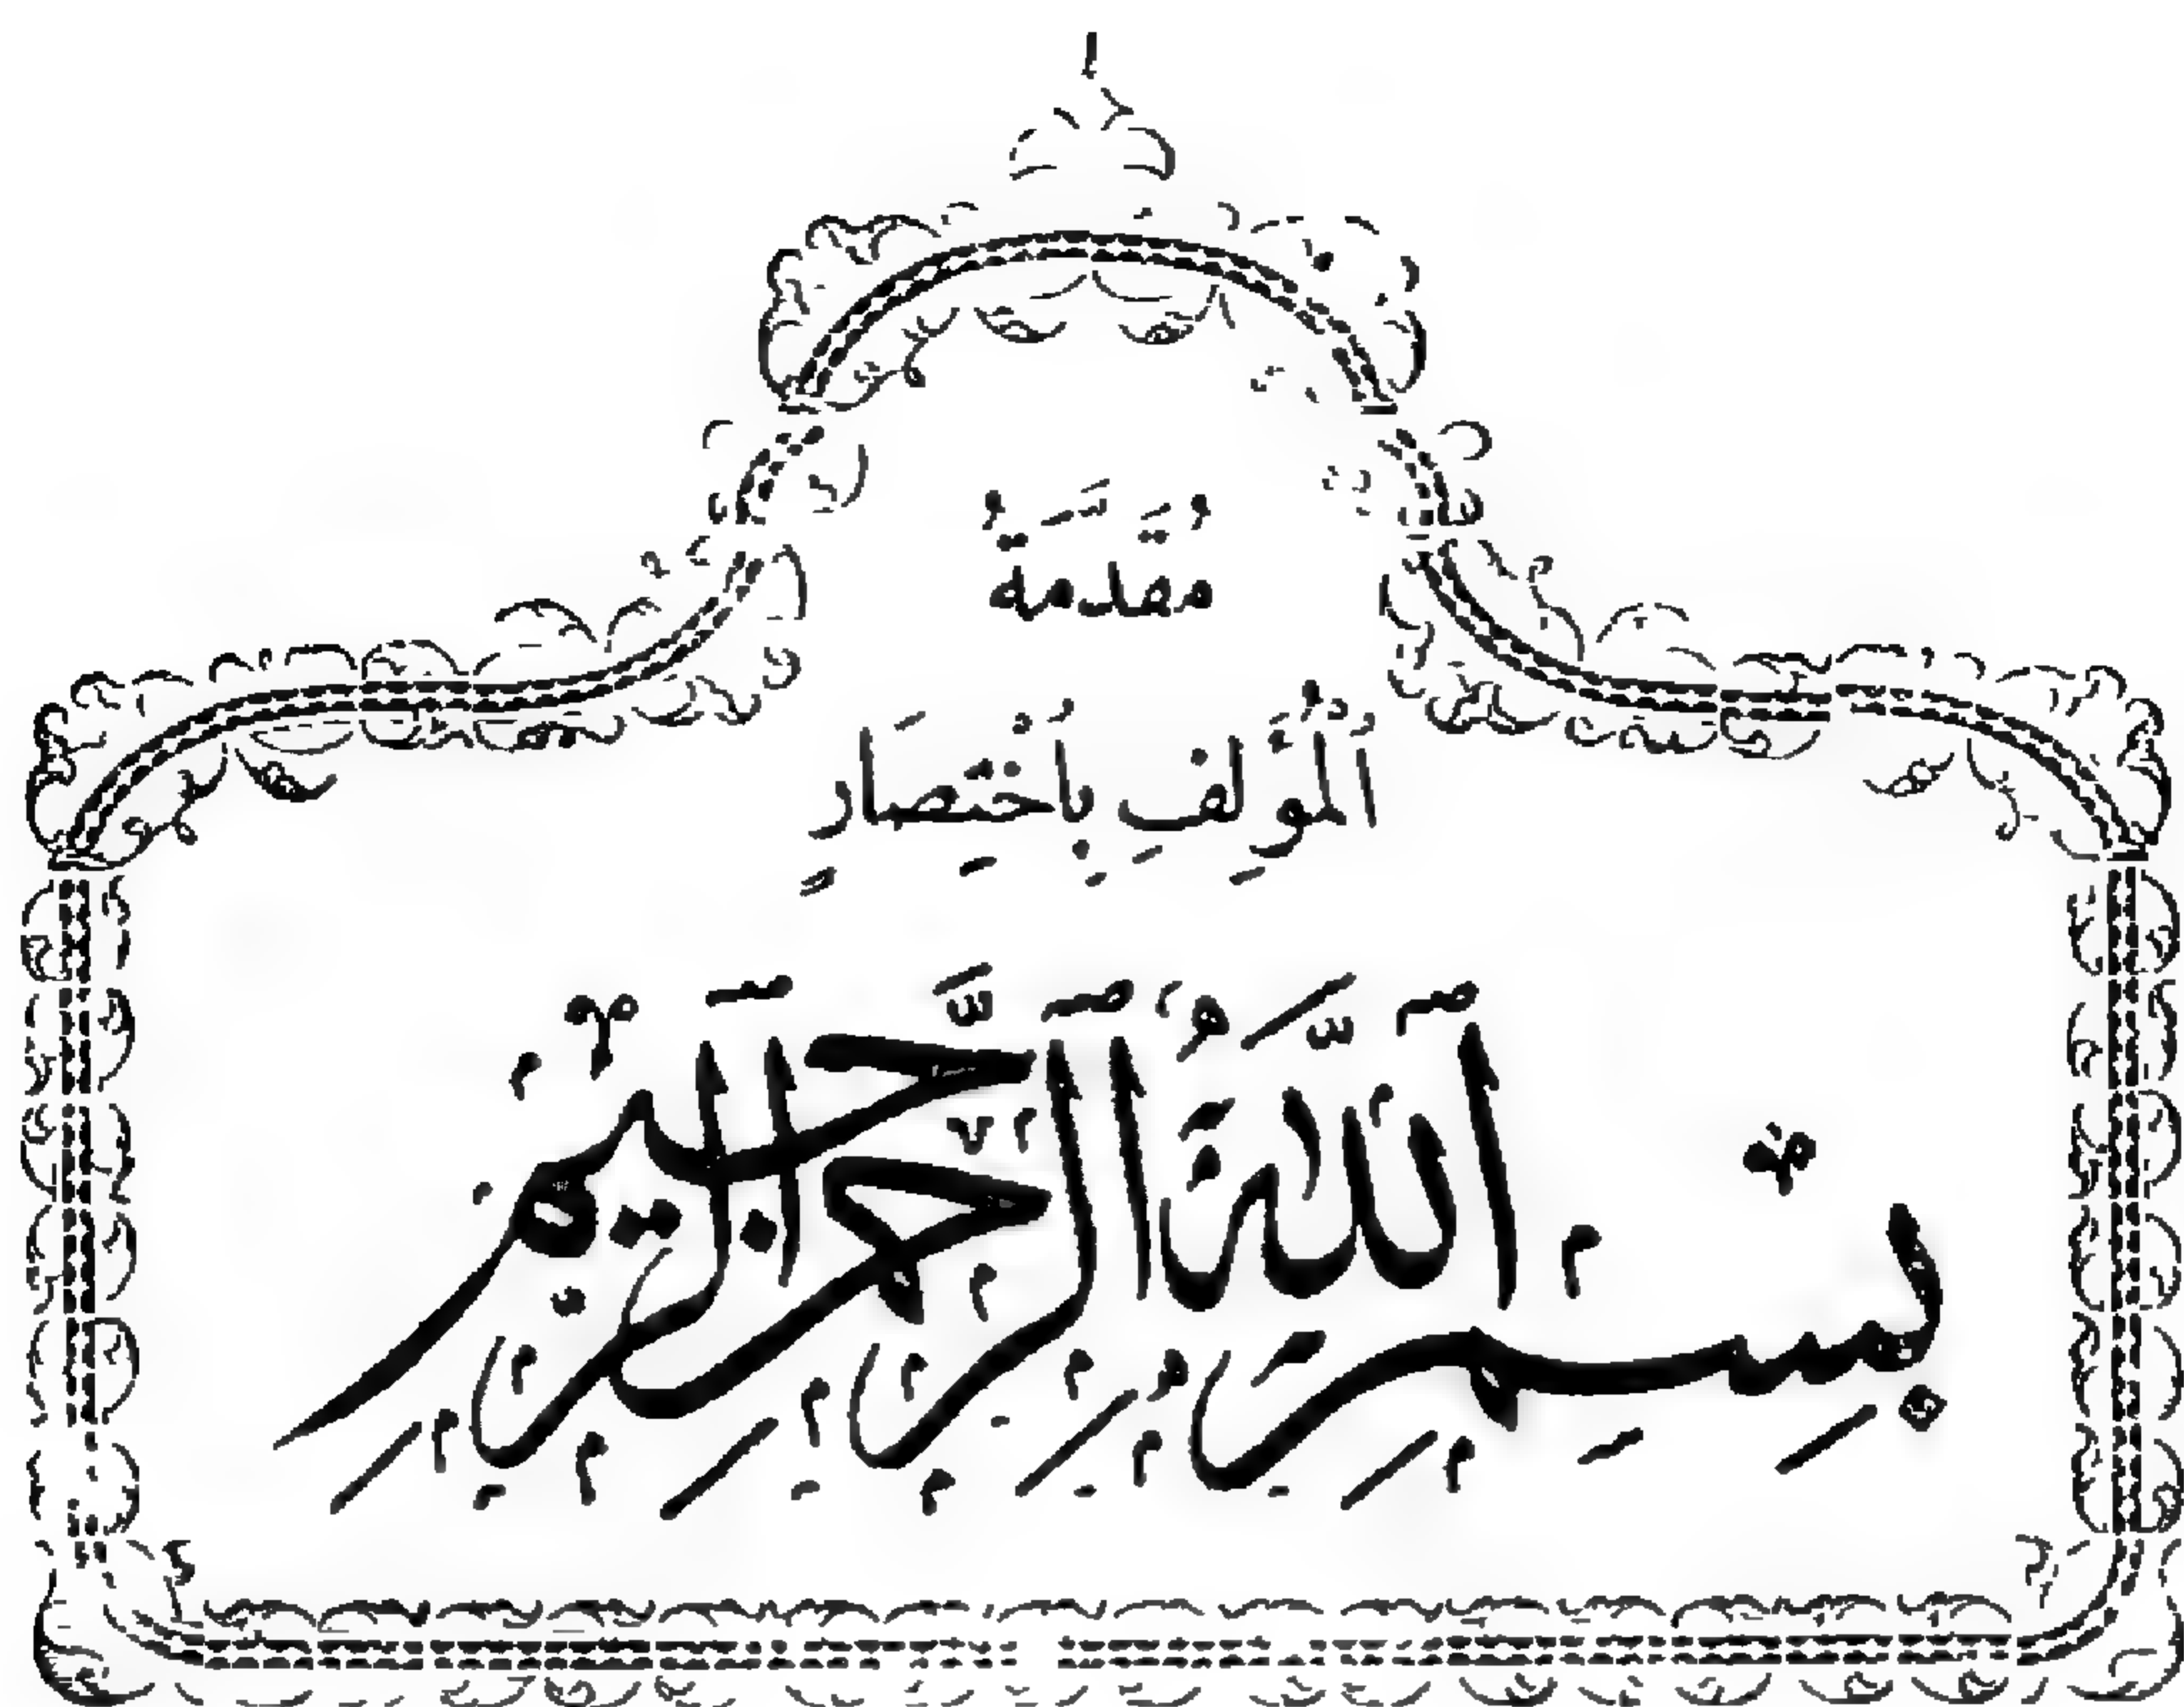 مُقَدَّمَةُ
اَلْمُؤَلِفِ بِاْخْتِصَارٍ
بِسْمِ اللَّهِ الرَّحْمَنِ الرَّحِيمِ